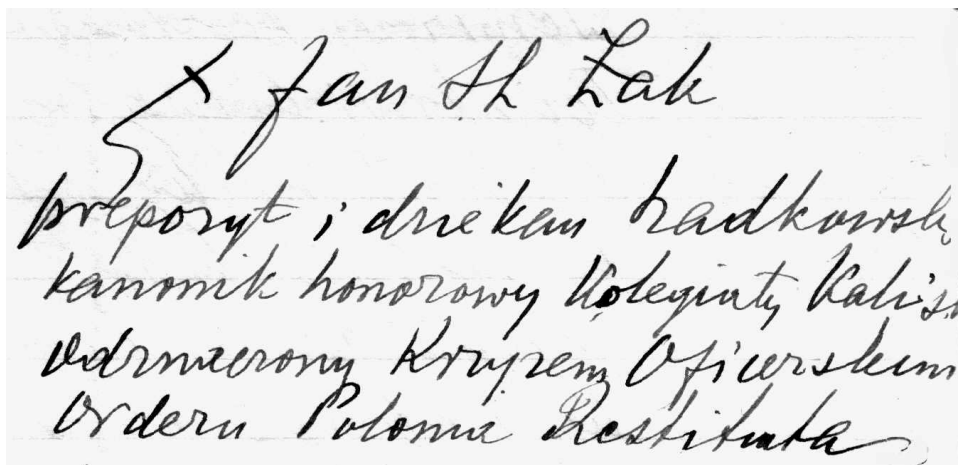 X Jan St. Żak
prepozyt i dziekan radkowski,
kanonik honorowy Kolegiaty Kalis
odznaczony Krzyżem Oficerskim
Orderu Polonia Restituta